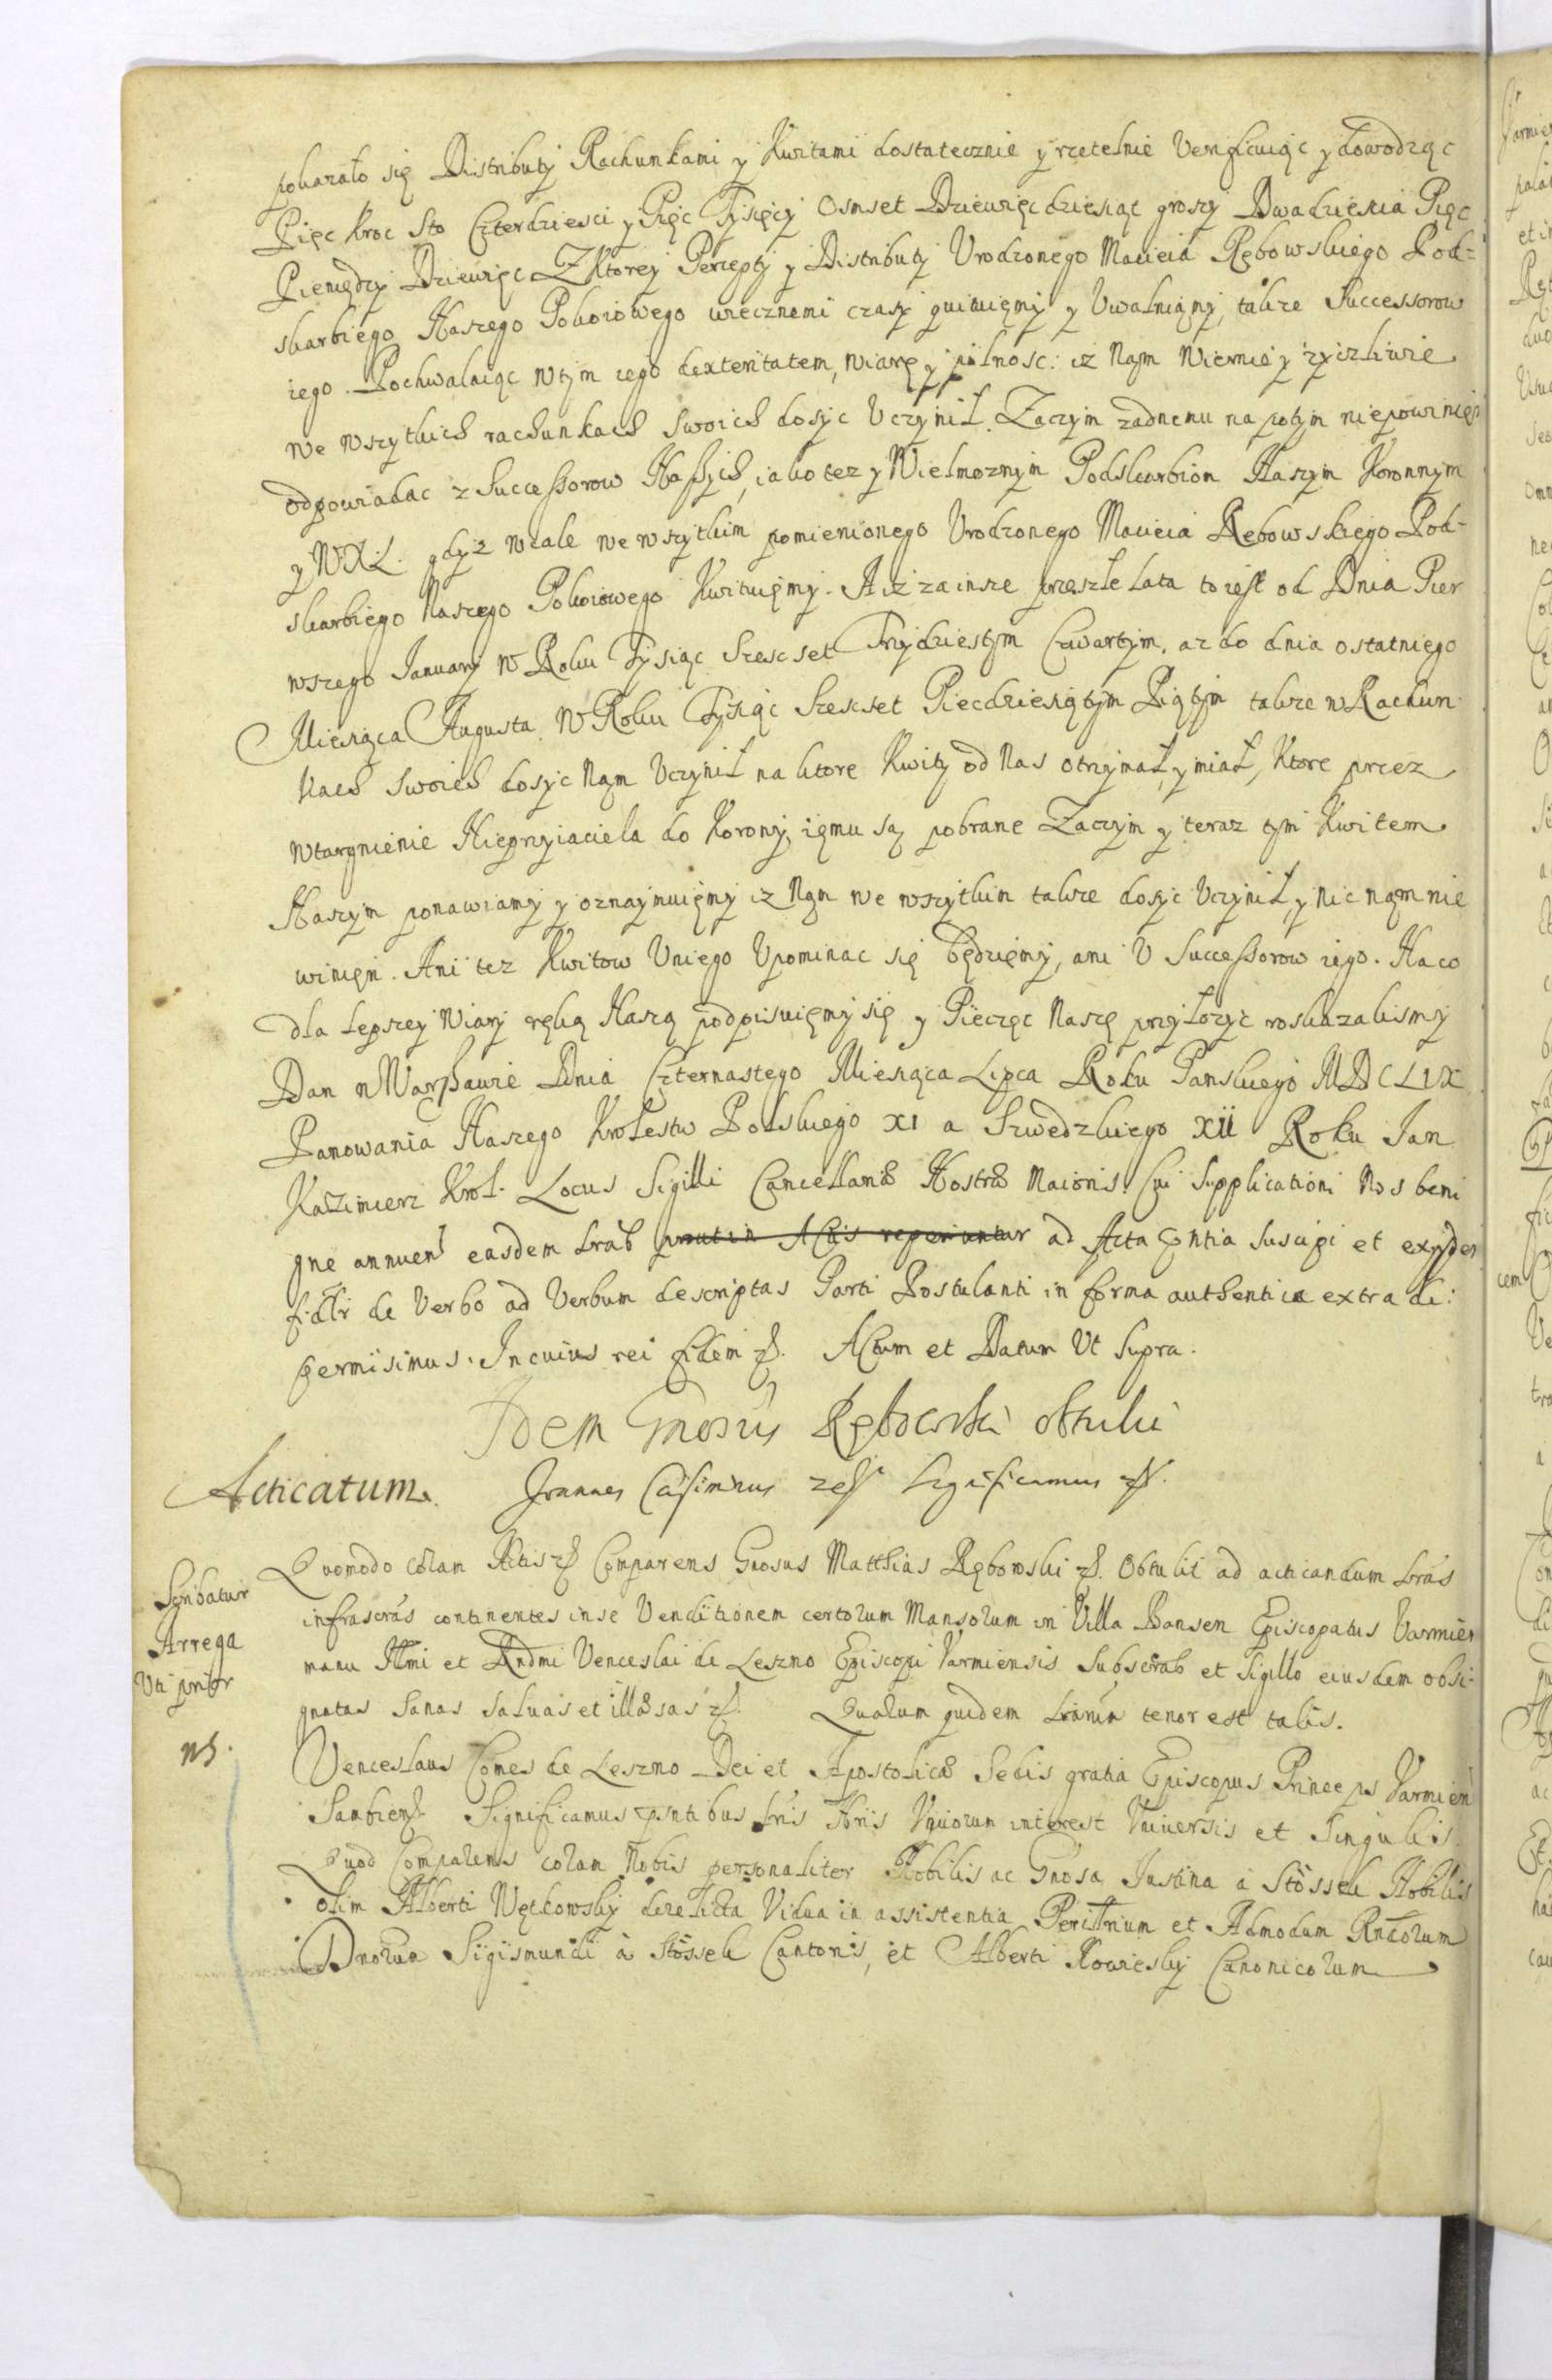 pokazało się Distributy Rachunkami y Kwitami dostatecznie y rzetelnie Verificuiąc y dowodząc
Pięc kroc sto Czterdziesci y Pięc Tysięcy Osmset Dziewięcdziesiąt groszy Dwadziescia Pięc
Pieniędzy Dziewięc Z Ktorey Percepty y Distributy Vrodzonego Macieia Rębowskiego Pod-
skarbiego Naszego Pokoiowego wiecznemi czasy quituięmy y Vwalniamy, takze Successorow
iego. Pochwalaiąc w tym iego dexteritatem, wiarę y pilnosc: iz Nąm wiernie y zyczliwie
we wszytkich rachunkach swoich dosyc Vczynił. Zaczym zadnemu na potym niepowinięn
odpowiadac z Successorow Naszych, iako tez y Wielmoznym Podskarbiom Naszym Koronnym
y WXL. gdyz wcale we wszytkim pomienionego Vrodzonego Macieia Rębowskiego Pod-
skarbiego Naszego Pokoiowego Kwituięmy. A iz za insze przeszłe lata to iest od Dnia Pier
wszego Januarij w Roku Tysiąc Szescset Trzydziestym Czwartym. az do dnia ostatniego
Miesiąca Augusta w Roku Tysiąc Szescset Piecdziesiątym Piątym takze w Rachun
kach swoich dosyc Nąm Vczynił na ktore Kwity od Nas otrzymał, y miał, Ktore przez
wtargnienie Nieprzyiaciela do Korony, iemu są pobrane Zaczym y teraz tym Kwitem
Naszym ponawiamy y oznaymuięmy iz Nąm we wszytkim takze dosyc Vczynił, y nic nąm nie
winięn. Ani tez Kwitow Vniego Vpominac się będzięmy, ani V Successorow iego. Na co
dla lepszey wiary ręką Naszą podpisuięmy się y Pieczęc Naszę przyłozyc roskazalismy
Dan w Warszawie Dnia Czternastego Miesiąca Lipca Roku Panskiego MDCLIX
Panowania Naszego Krolestw Polskiego XI a Szwedzkiego XII Roku Jan
Kazimierz Krol. Locus Sigilli Cancellariæ Nostræ Maioris. Cui Supplicationi Nos beni
gne annuen easdem Lrãs prout in Actis reperiuntur ad Acta suscipi et
de Verbo ad Verbum descriptas Parti Postulanti in forma authentica extradi:
permisimus. In cuius rei fidem Actum et Datum Vt Supra.
Idem Gnosus Rębowski obtulit
Acticatum. Joannes Casimirus Significamus
Scribatur
Arrega
Vti prior
Quomodo coram Actis Comparens Gnosus Matthias Rębowski Obtulit ad acticandum Lrãs
infrascrãs continentes in se Venditionem certorum Mansorum in Villa Bansen Episcopatus Varmien
manu Illmi et Rndmi Venceslai de Leszno Episcopi Varmiensis Subscrãb et Sigillo eiusdem obsi-
gnatas Sanas Saluas et illæsas Quarum quidem Lrãrum tenor est talis.
NS.
Venceslaus Comes de Leszno Dei et Apostolicæ Sedis gratia Episcopus Princeps Varmien
Sambien Significamus Lrĩs Nrĩs Quorum interest Vniversis et Singulis.
Quod Comparens coram Nobis personaliter Nobilis ac Gnosa Justina à Stössel Nobilis
olim Alberti Wętkowsky derelicta Vidua in assistentia et Admodum Rndorum
Dnorum Sigismundi à Stössel Cantoris, et Alberti Nowiesky Canonicorum